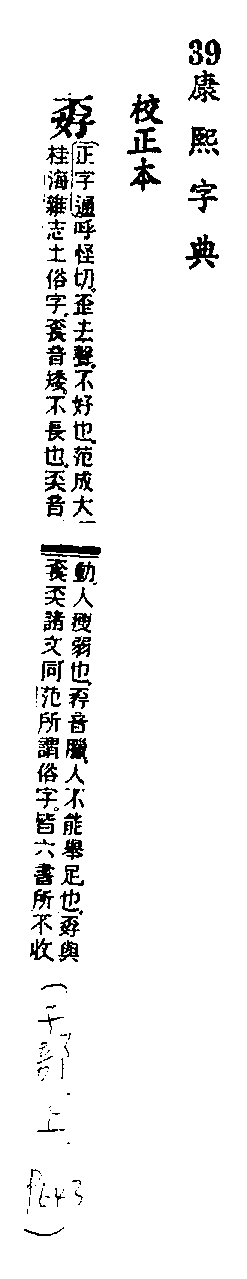 39康熙字典
校正本
孬
正字通呼怪切。歪去聲。不好也。范成大
桂海雜志土俗字。音矮。不長也。奀音
動。人瘦弱也。音臘。人不能舉足也。孬與
奀諸文同。范所謂俗字。皆六書所不收
(子部上 P643)